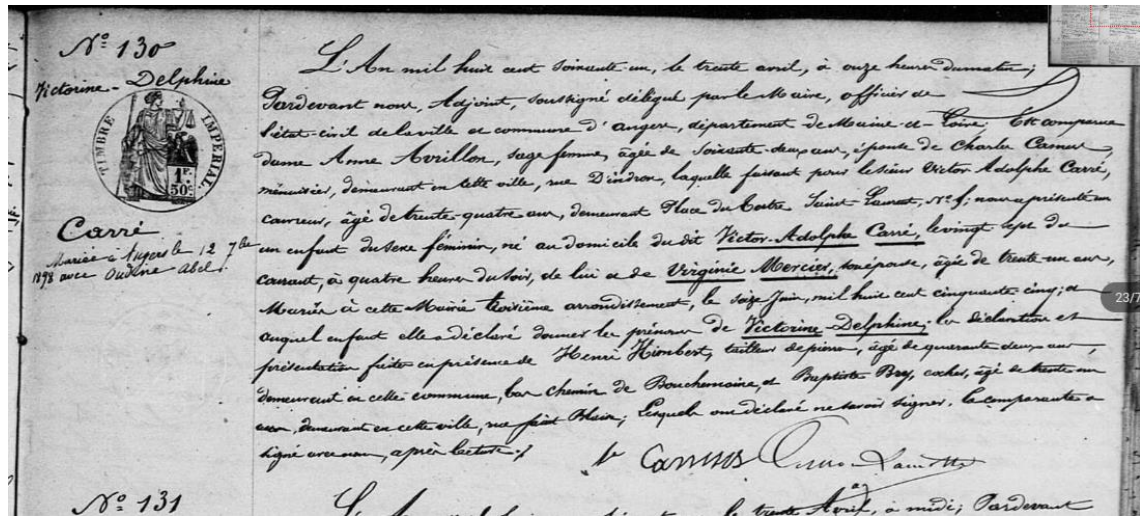 N° 130
Victorine-Delphine
TIMBRE IMPÉRIAL
1F.
50c
Carré
Mariée à Angers le 12 7bre
1898 avec Oudine Abel.
L'An mil huit cent soixante-un, le trente avril, à onze heures du matin;
Pardevant nous, Adjoint, soussigné délégué par le Maire, officier de
l'état-civil de la ville et commune d'angers, département de Maine-et-Loire; Est comparue
dame Anne Avrillon, sage femme, âgée de soixante-deux ans, épouse de Charles Camus,
menuisier, demeurant en cette ville, rue Dindron, laquelle faisant pour le sieur Victor Adolphe Carré,
âgé de trente-quatre ans, demeurant Place du Tertre Saint-Laurent, N° nous a présenté
un enfant du sexe féminin, né au domicile du dit Victor-Adolphe Carré, le vingt-sept du
courant, à quatre heures du soir, de lui et de Virginie Mercier, son épouse, âgée de trente-un ans,
Mariés à cette Mairie troisième arrondissement, le seize Juin, mil huit cent cinquante-cinq; et
auquel enfant elle a déclaré donner les prénoms de Victorine-Delphine; les déclaration et
présentation faites en présence de Henri Himbert, tailleur de pierres, âgé de quarante-deux ans
demeurant en cette commune, bas chemin de Bouchemaine, et Baptiste Bry, cocher, âgé de trente-un
ans, demeurant en cette ville, rue Saint Blaise; Lesquels ont déclaré ne savoir signer, la comparante a
signé avec nous, après lecture./
N° 131
le trente Avril, à midi; Pardevant
23/7